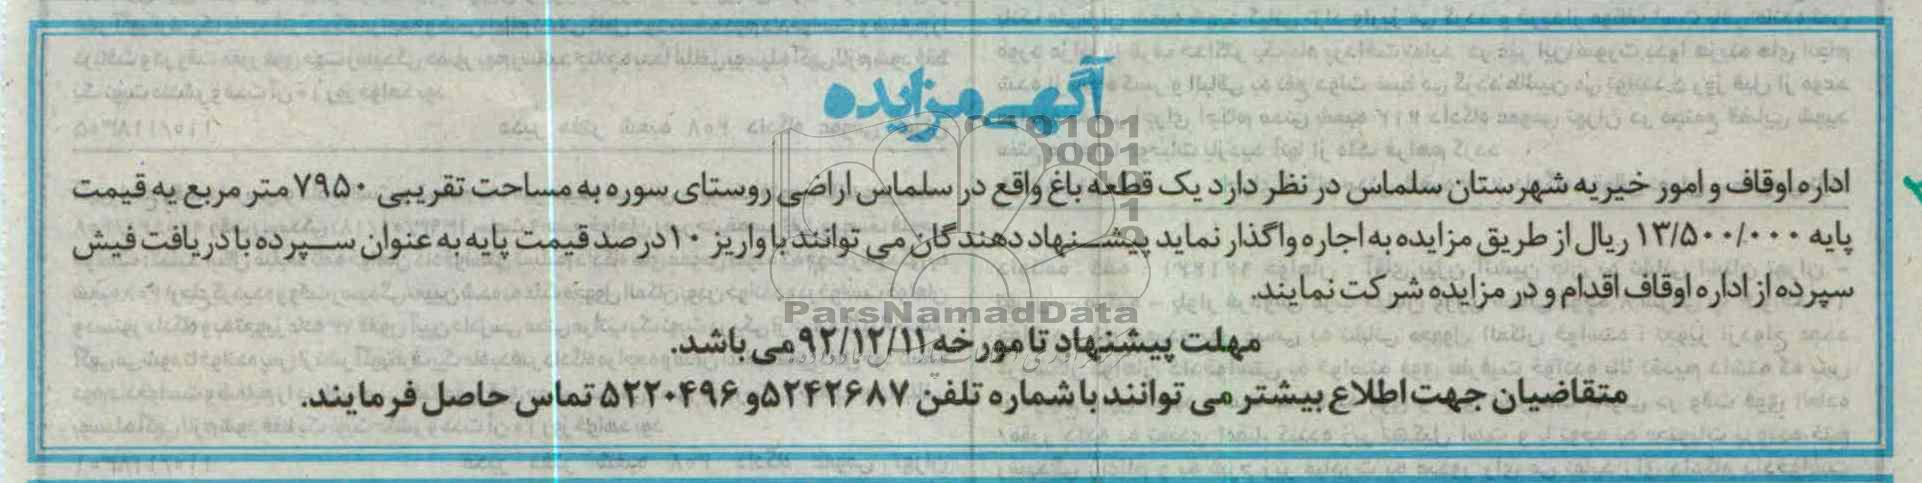 آگهی مزایده
اداره اوقاف و امور خیریه شهرستان سلماس در نظر دارد یک قطعه باغ واقع در سلماس اراضی روستای سوره به مساحت تقریبی ۷۹۵۰ متر مربع به قیمت
پایه ۱۳/۵۰۰/۰۰۰ ریال از طریق مزایده به اجاره واگذار نماید پیشنهاد دهندگان می توانند با واریز ۱۰ درصد قیمت پایه به عنوان سپرده با دریافت فیش
سپرده از اداره اوقاف اقدام و در مزایده شرکت نمایند.
ParsNamadData
مهلت پیشنهاد تا مورخه ۹۲/۱۲/۱۱ می باشد.
متقاضیان جهت اطلاع بیشتر می توانند با شماره تلفن ۵۲۴۲۶۸۷ و ۵۲۲۰۴۹۶ تماس حاصل فرمایند.